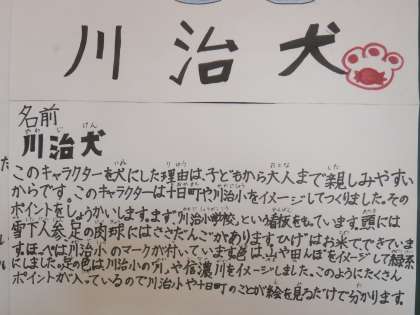 川治犬
名前
かわ じ けん
川治犬
このキャラクターを犬にした理由は、子どもから大人まで親しみやすい
からです。このキャラクターは十日町や川治小をイメージしてつくりました。その
ポイントをしょうかいします。まず"川治小学校"という看板をもっています。頭には
雪下人参、足の肉球にはささだんごがあります。ひげはお米でできていま
す。ほっぺは川治小のマークが付いています。色は、山や田んぼをイメージして緑系
にしました。足の色は川治小の「川」や信濃川をイメージしました。このようにたくさん
ポイントが入っているので川治小や十日町のことが絵を見るだけで分かります